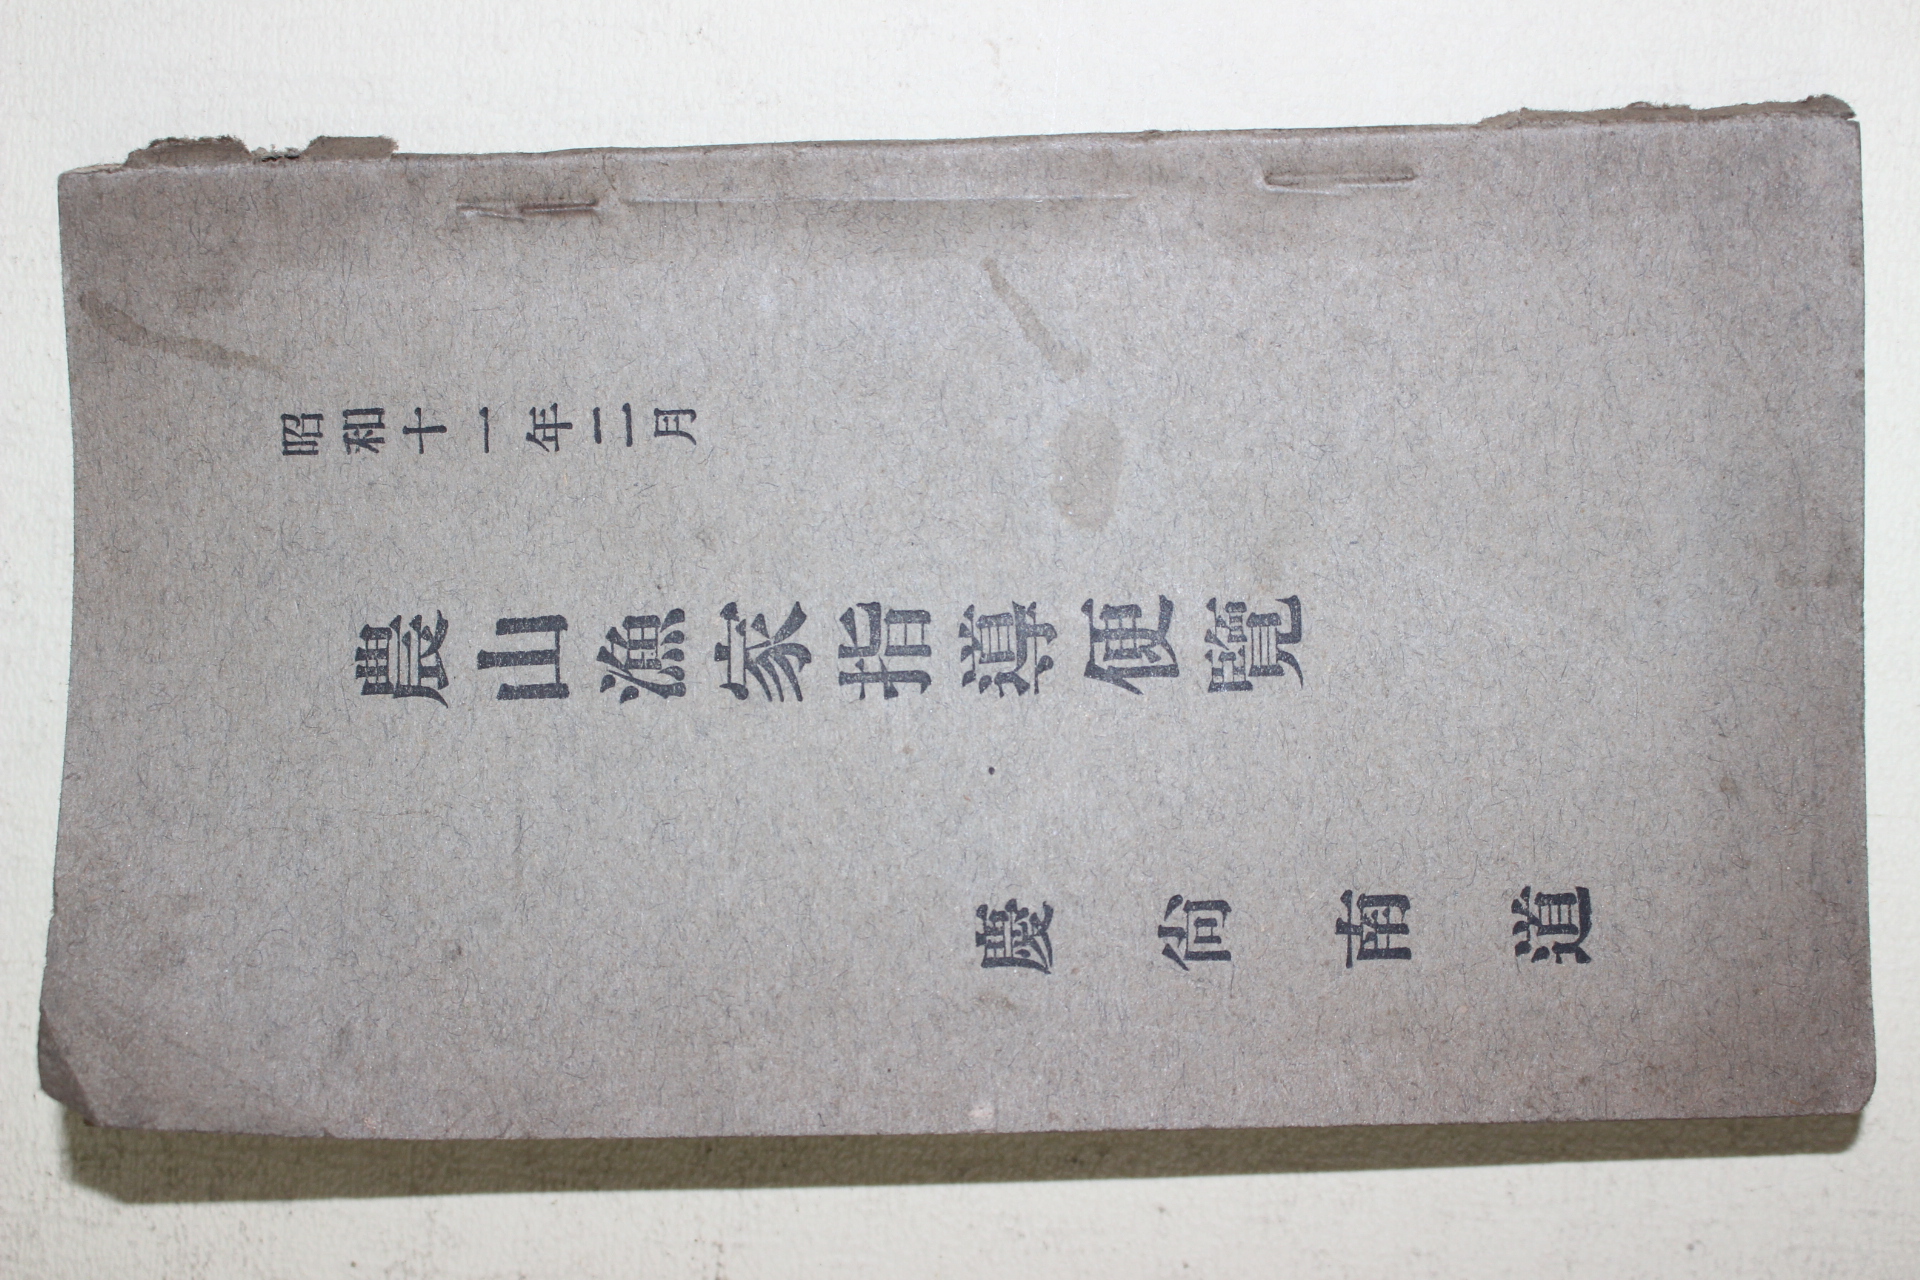 昭和十一年二月
農山漁家指導便覽
慶尙南道